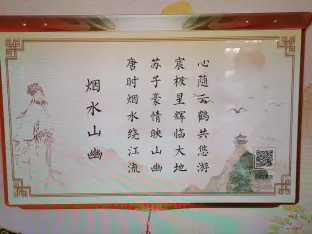 心随云鹤共悠游
宸极星辉临大地
苏子豪情映山幽
唐时烟水绕江流
烟水山幽